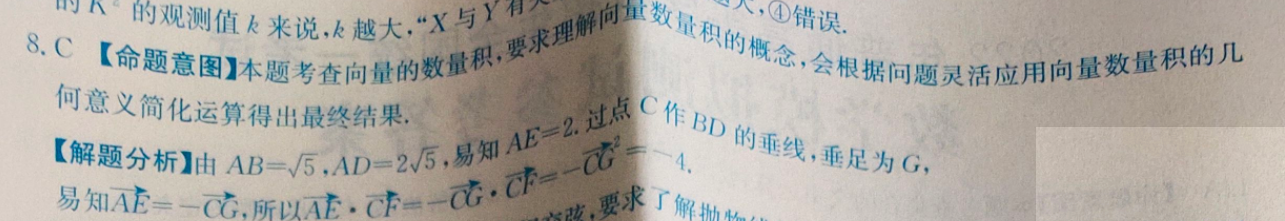 的K²的观测值k来说,k越大,“X与Y有 大,④错误.
8. C 【命题意图】本题考查向量的数量积,要求理解向量数量积的概念,会根据问题灵活应用向量数量积的几
何意义简化运算得出最终结果.
【解题分析】由 AB=√5,AD=2√5,易知 AE=2.过点 C 作 BD 的垂线,垂足为 G,
易知$\overrightarrow{AE}=-\overrightarrow{CG}$,所以$\overrightarrow{AE}\cdot\overrightarrow{CF}=-\overrightarrow{CG}\cdot\overrightarrow{CF}=-\overrightarrow{CG}^2=-4$.
弦,要求了解抛物线